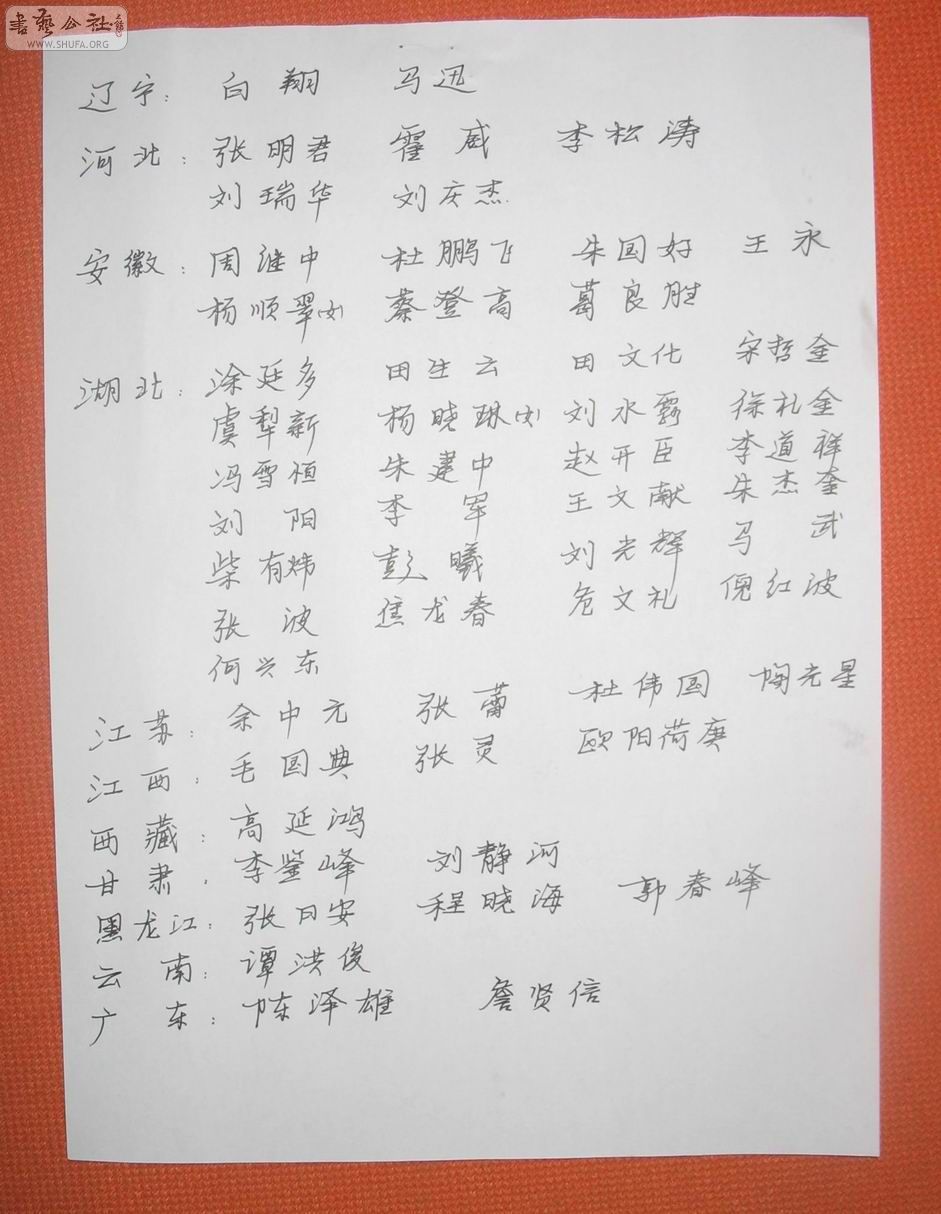 書藝公社
WWW.SHUFA.ORG
辽宁：白翔 马迅
河北：张明君 霍威 李松涛
刘瑞华 刘庆杰
安徽：周维中 杜鹏飞 朱国好 王永
杨顺翠(女) 蔡登高 葛良胜
湖北：涂廷多 田生云 田文化 宋哲金
虞犁新 杨晓琳(女) 刘水霞 徐礼金
冯雪恒 朱建中 赵开臣 李道祥
刘阳 李军 王文献 朱杰奎
柴有炜 彭曦 刘光辉 马武
张波 焦龙春 危文礼 倪红波
何兴东
江苏：余中元 张蕾 杜伟国 陶光星
江西：毛国典 张灵 欧阳荷庚
西藏：高延鸿
甘肃：李鉴峰 刘静河
黑龙江：张日安 程晓海 郭春峰
云南：谭洪俊
广东：陈泽雄 詹贤信